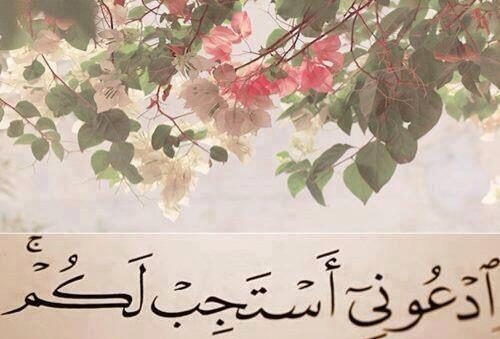 ٱدْعُونِىٓ أَسْتَجِبْ لَكُمْ ۚ